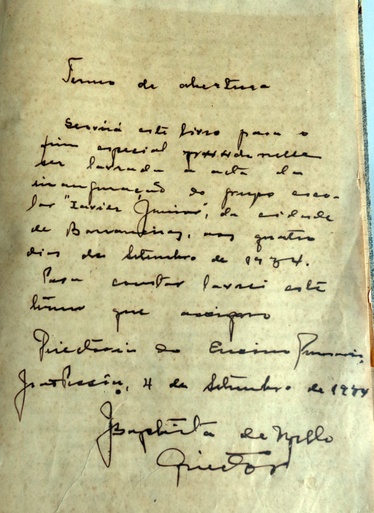 Termo de abertura
Servirá este livro para o
fim especial de nelle
ser lavrada a acta da
inauguração do grupo esco-
lar "Xavier Junior", da cidade
de Bananeiras, aos quatro
dias de Setembro de 1934.
Para constar lavrei este
termo que assigno
Directoria do Ensino Primario,
João Pessôa, 4 de Setembro de 1934
JBaptista de Mello
Director